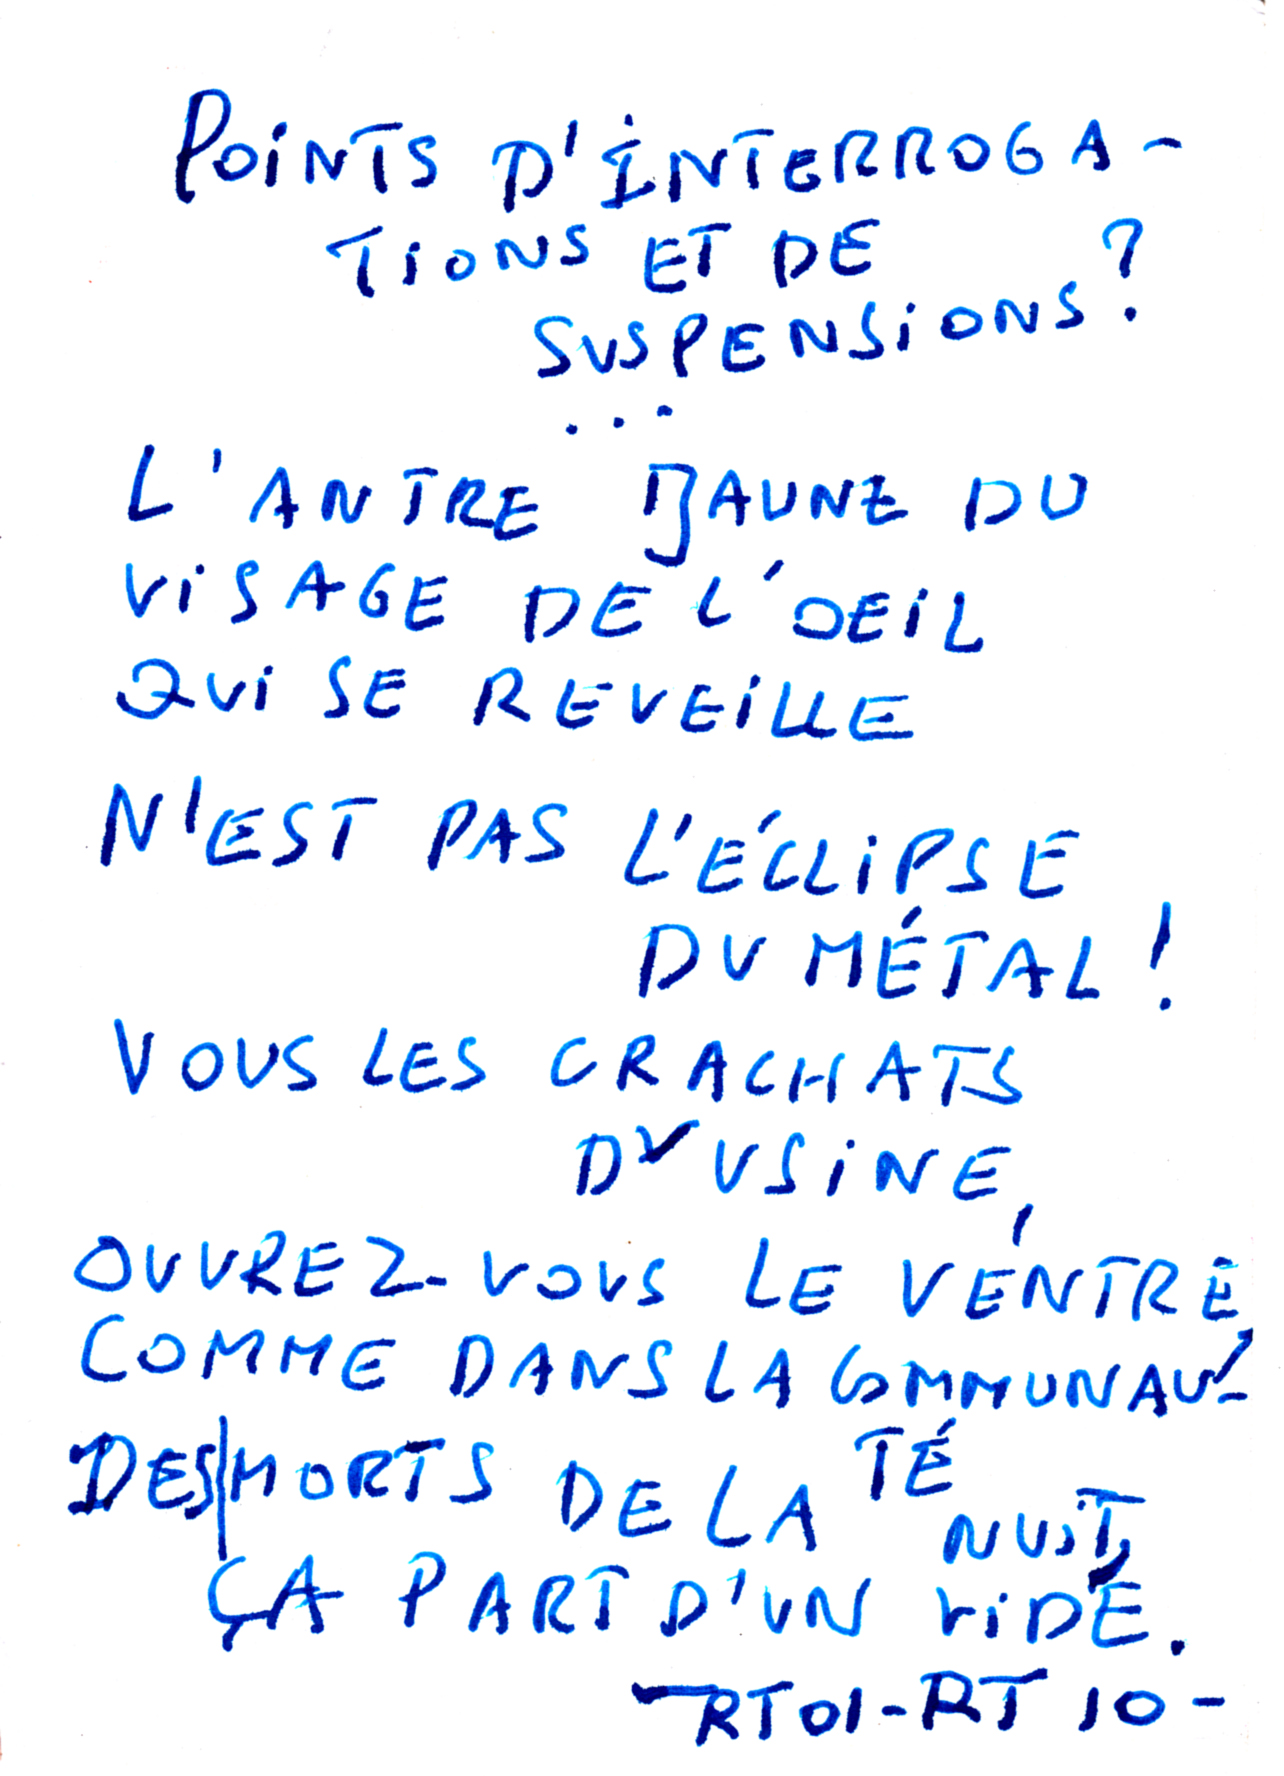 POINTS D'INTERROGA-
TIONS ET DE
SUSPENSIONS?
...
L'ANTRE JAUNE DU
VISAGE DE L'OEIL
QUI SE REVEILLE
N'EST PAS L'ÉCLIPSE
DU MÉTAL!
VOUS LES CRACHATS
D'USINE,
OUVREZ-VOUS LE VENTRE,
COMME DANS LA COMMUNAU-
TÉ
DES MORTS DE LA NUIT,
ÇA PART D'UN VIDE.
RT01-RT10-